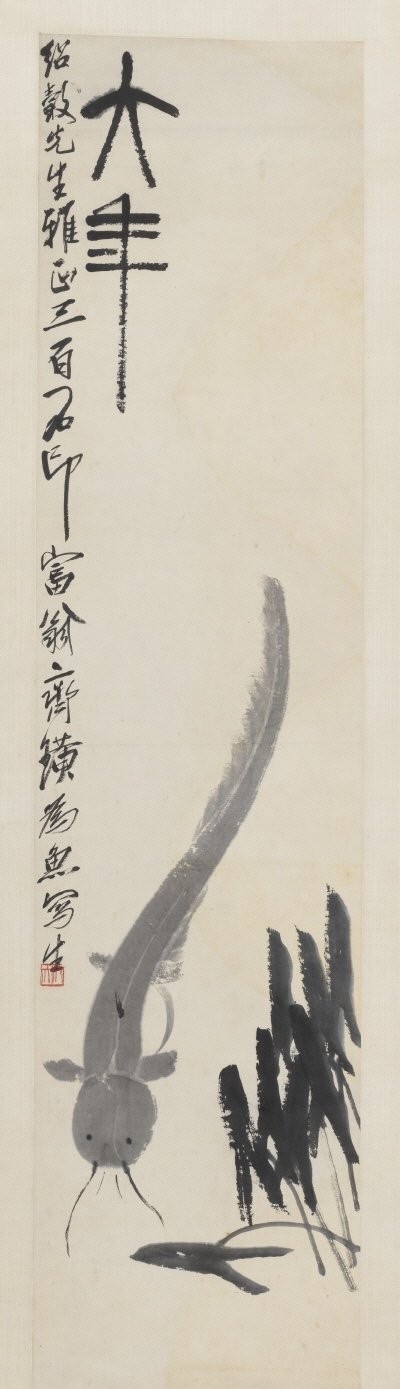 大年
紹先生雅正三百石印富翁齊璜為魚寫生